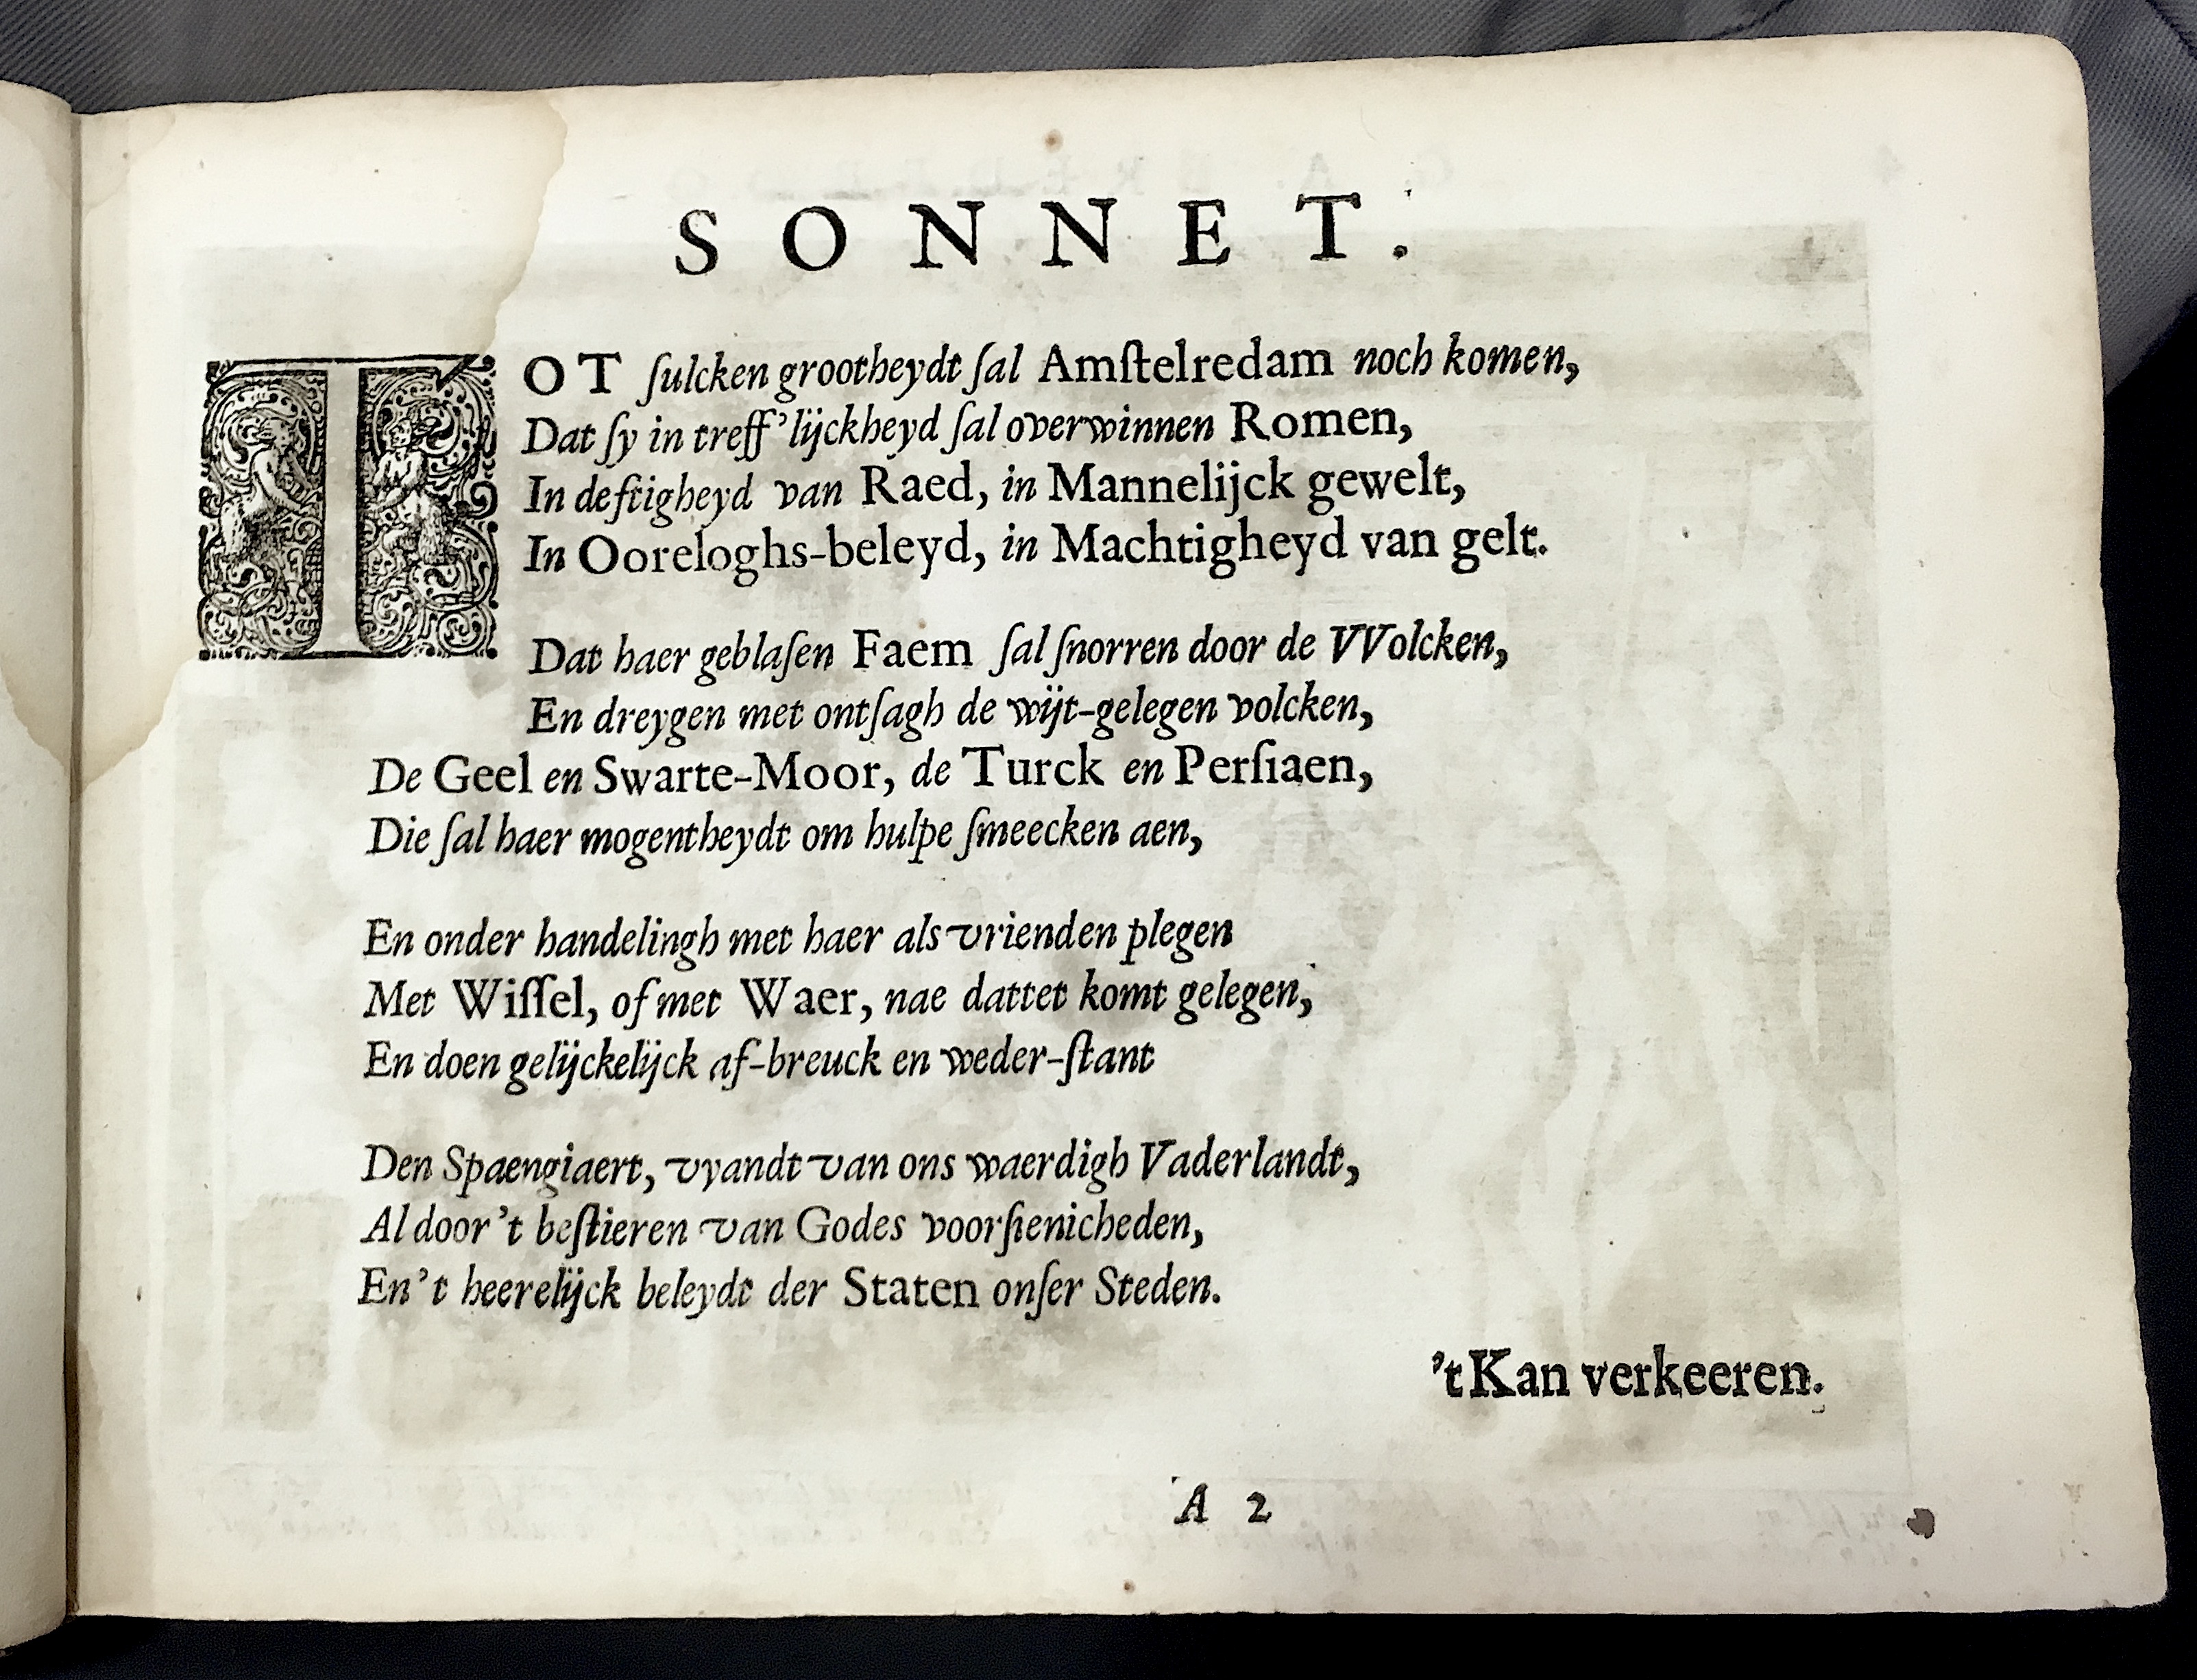 SONNET.
TOT ſulcken grootheydt ſal Amſtelredam noch komen,
Dat ſy in treff'lijckheyd ſal overwinnen Romen,
In deftigheyd van Raed, in Mannelijck gewelt,
In Ooreloghs-beleyd, in Machtigheyd van gelt.
Dat haer geblaſen Faem ſal ſnorren door de VVolcken,
En dreygen met ontſagh de wijt-gelegen volcken,
De Geel en Swarte-Moor, de Turck en Perſiaen,
Die ſal haer mogentheydt om hulpe ſmeecken aen,
En onder handelingh met haer als vrienden plegen
Met Wiſſel, of met Waer, nae dattet komt gelegen,
En doen gelijckelijck af-breuck en weder-ſtant
Den Spaengiaert, vyandt van ons waerdigh Vaderlandt,
Al door 't beſtieren van Godes voorſienicheden,
En 't heerelijck beleydt der Staten onſer Steden.
't Kan verkeeren.
A 2